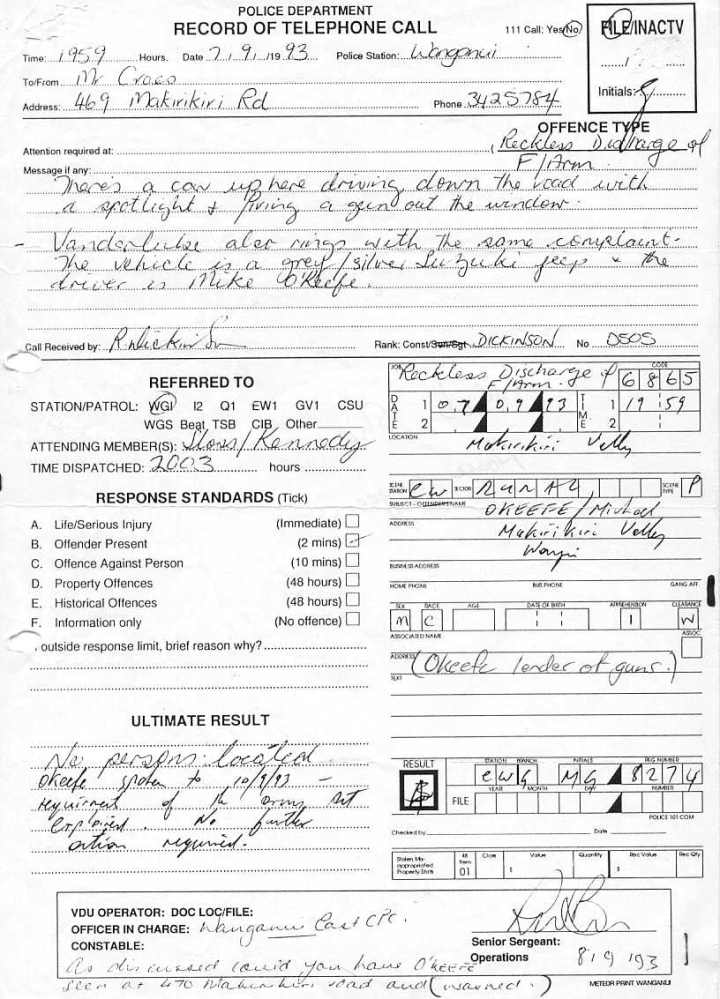 POLICE DEPARTMENT
RECORD OF TELEPHONE CALL
111 Call: Yes/No
FILE/INACTV
Initials:
Time: 1959 Hours. Date 7 , 9 , 19 93 Police Station: Wanganui
To/From Mr
Address: 469 Makirikiri Rd Phone 3425784
OFFENCE TYPE
Attention required at: (Reckless Discharge of
Message if any: F/Arm.
There's a car up here driving down the road with
a spotlight & firing a gun out the window.
- also rings with the same complaint.
The vehicle is a grey/silver Suzuki jeep & the
driver is Mike O'Keefe.
Call Received by: Rank: Const/Sgt DICKINSON No D505
REFERRED TO
STATION/PATROL: WGI I2 Q1 EW1 GV1 CSU
WGS Beat TSB CIB Other
ATTENDING MEMBER(S): /Kennedy
TIME DISPATCHED: 2003 hours
RESPONSE STANDARDS (Tick)
A. Life/Serious Injury (Immediate)
B. Offender Present (2 mins)
C. Offence Against Person (10 mins)
D. Property Offences (48 hours)
E. Historical Offences (48 hours)
F. Information only (No offence)
outside response limit, brief reason why?
ULTIMATE RESULT
No persons located.
Okeefe spoken to 10/9/93 -
requirement of the arms act
explained. No further
action required.
JOB Reckless Discharge of CODE
F/Arm. 6865
DATE 1 07 09 93 TIME 1 19 59
2 2
LOCATION
Makirikiri Valley
SCENE STATION CW SECTOR SCENE TYPE P
SUBJECT - OFFENDER NAME
OKEEFE/Michael
ADDRESS
Makirikiri Valley
BUSINESS ADDRESS
HOME PHONE BUS PHONE GANG AFF.
SEX RACE AGE DATE OF BIRTH APPREHENSION CLEARANCE
M C 1 W
ASSOCIATED NAME ASSOC
ADDRESS
(Okeefe lender of guns.)
TEXT
RESULT
STATION BRANCH INITIALS REG NUMBER
CWG MG 8274
YEAR MONTH DAY NUMBER
FILE
POLICE 101 COM
Checked by Date
Stolen Misappropriated Property Stats 48 Item 01 Class Value Quantity Rec Value Rec Qty
VDU OPERATOR: DOC LOC/FILE:
OFFICER IN CHARGE: Wanganui East CPC.
CONSTABLE:
Senior Sergeant:
Operations 8 19 193
As discussed could you have O'Keefe
seen at 470 Makirikiri road and (warned.)
METEOR PRINT WANGANUI